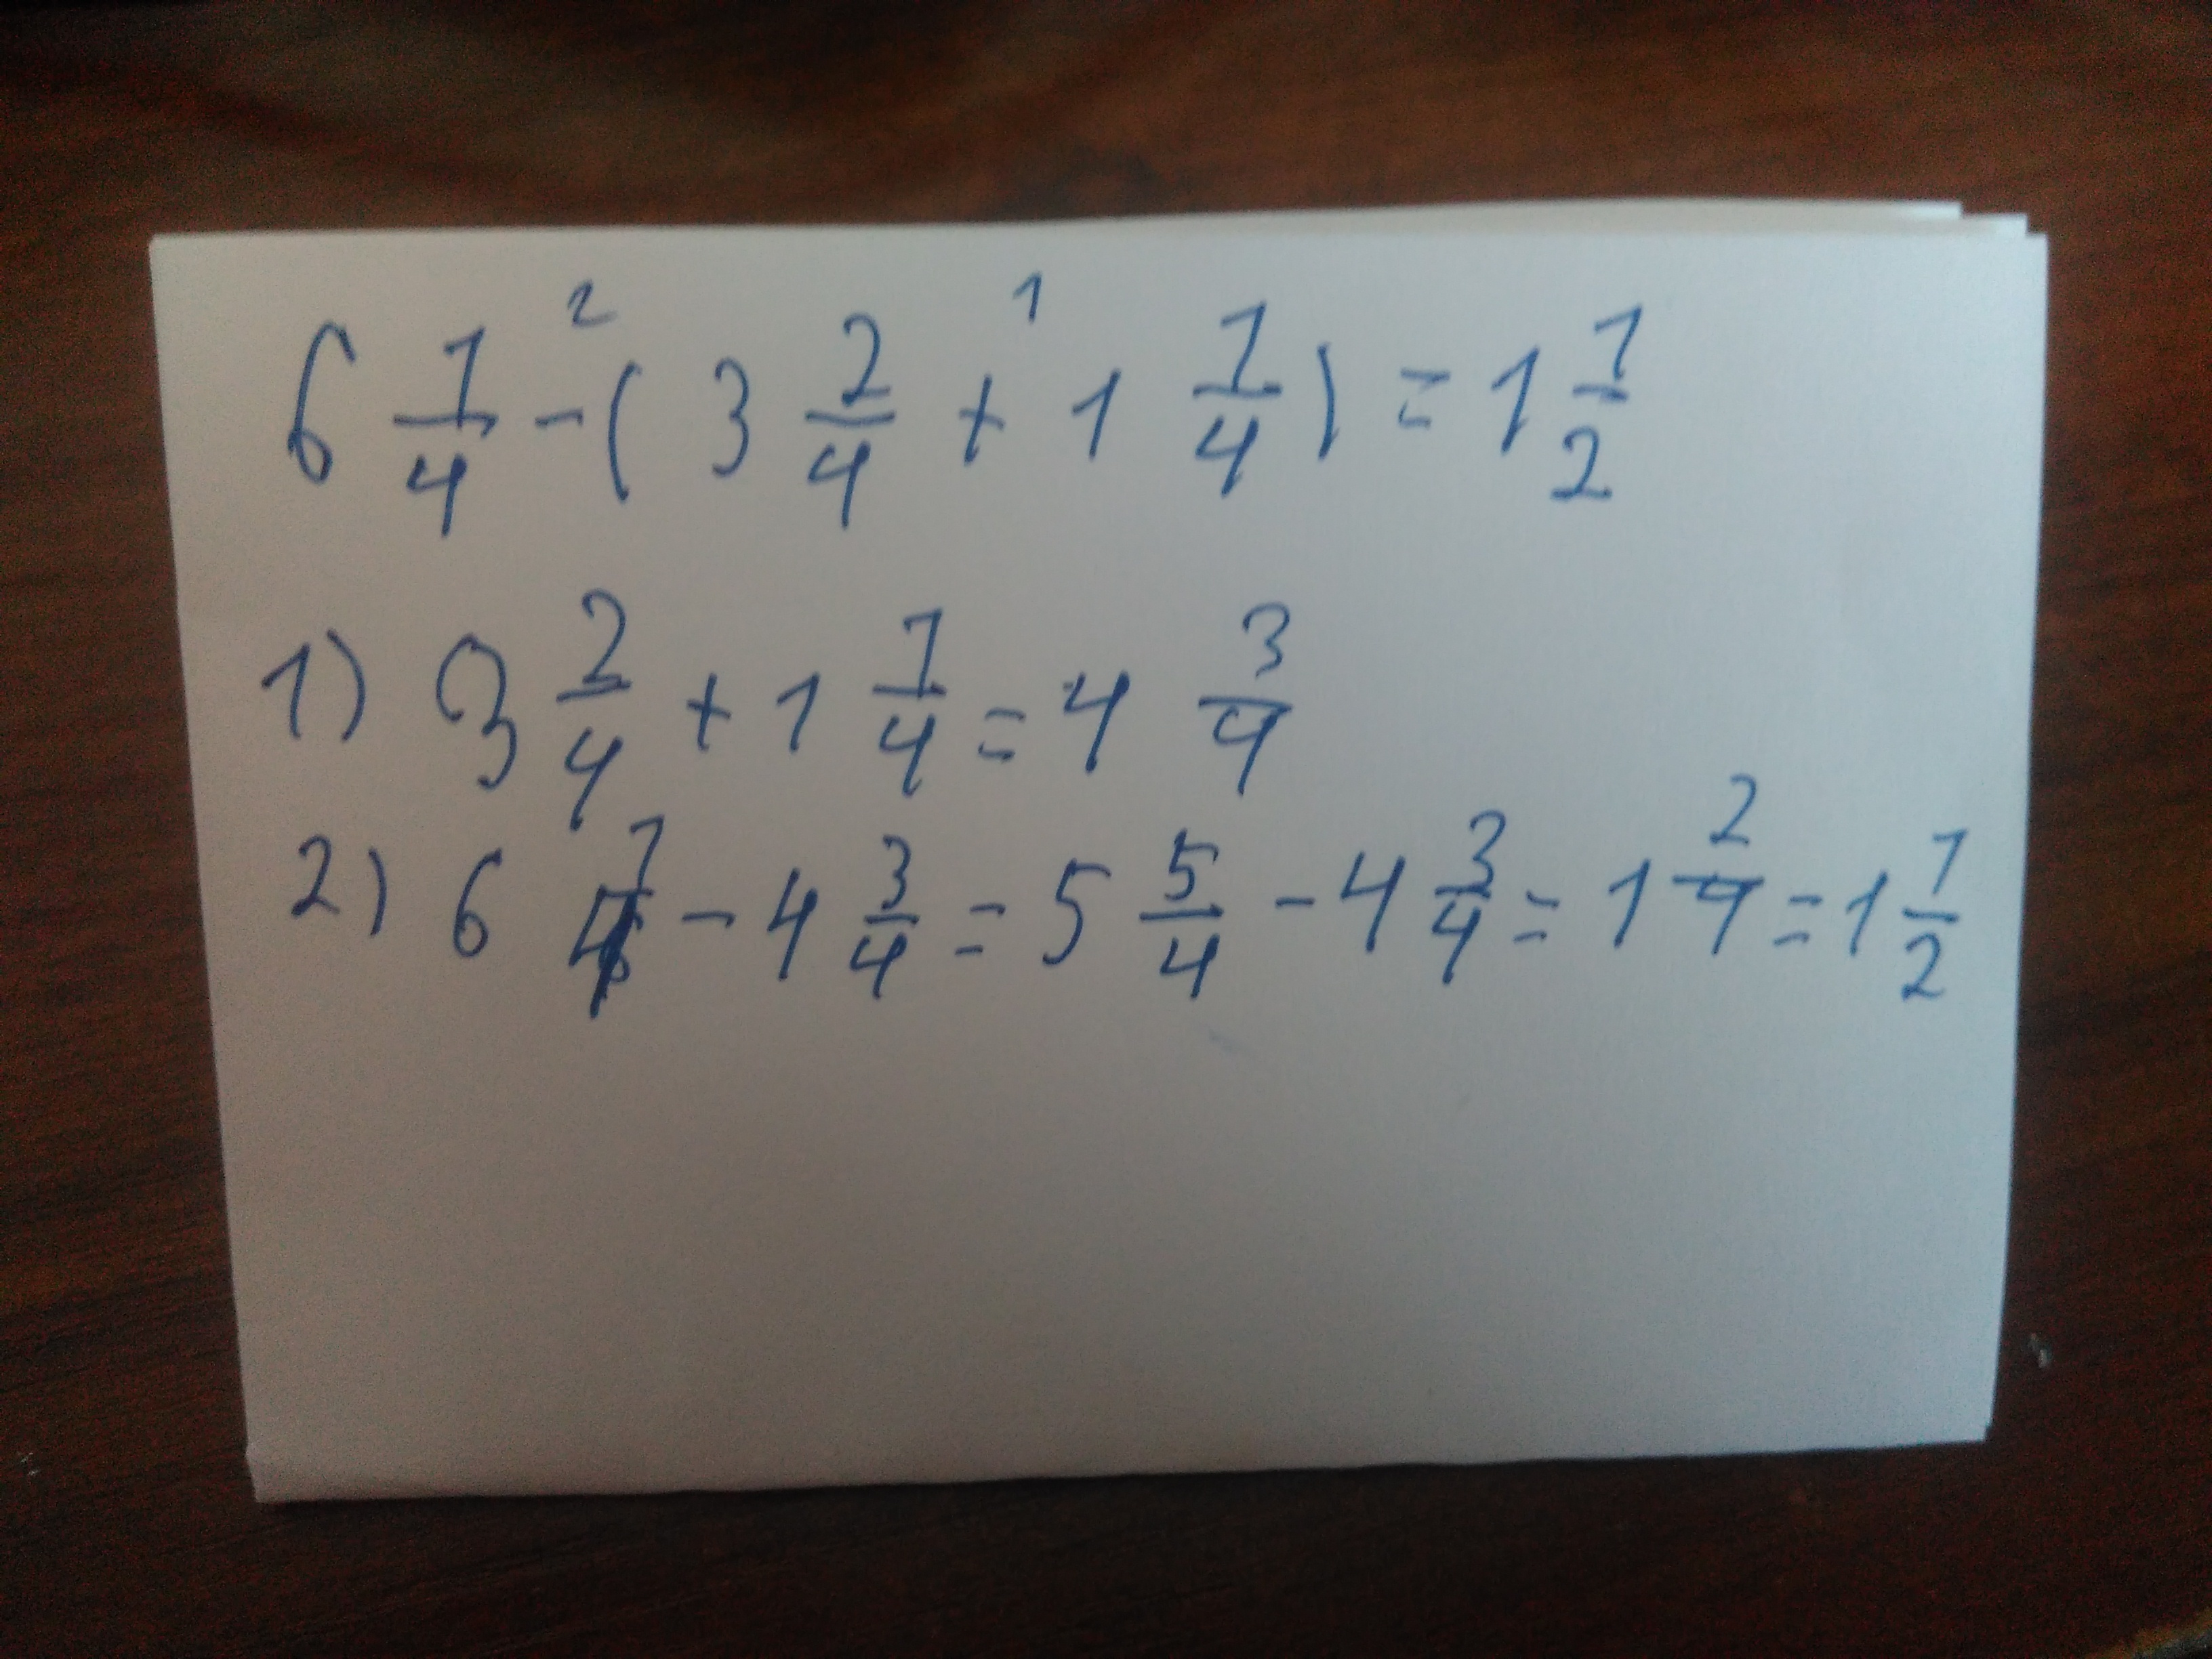 6 1/4 -² ( 3 2/4 +¹ 1 1/4 ) = 1 1/2
1) 3 2/4 + 1 1/4 = 4 3/4
2) 6 1/4 - 4 3/4 = 5 5/4 - 4 3/4 = 1 2/4 = 1 1/2